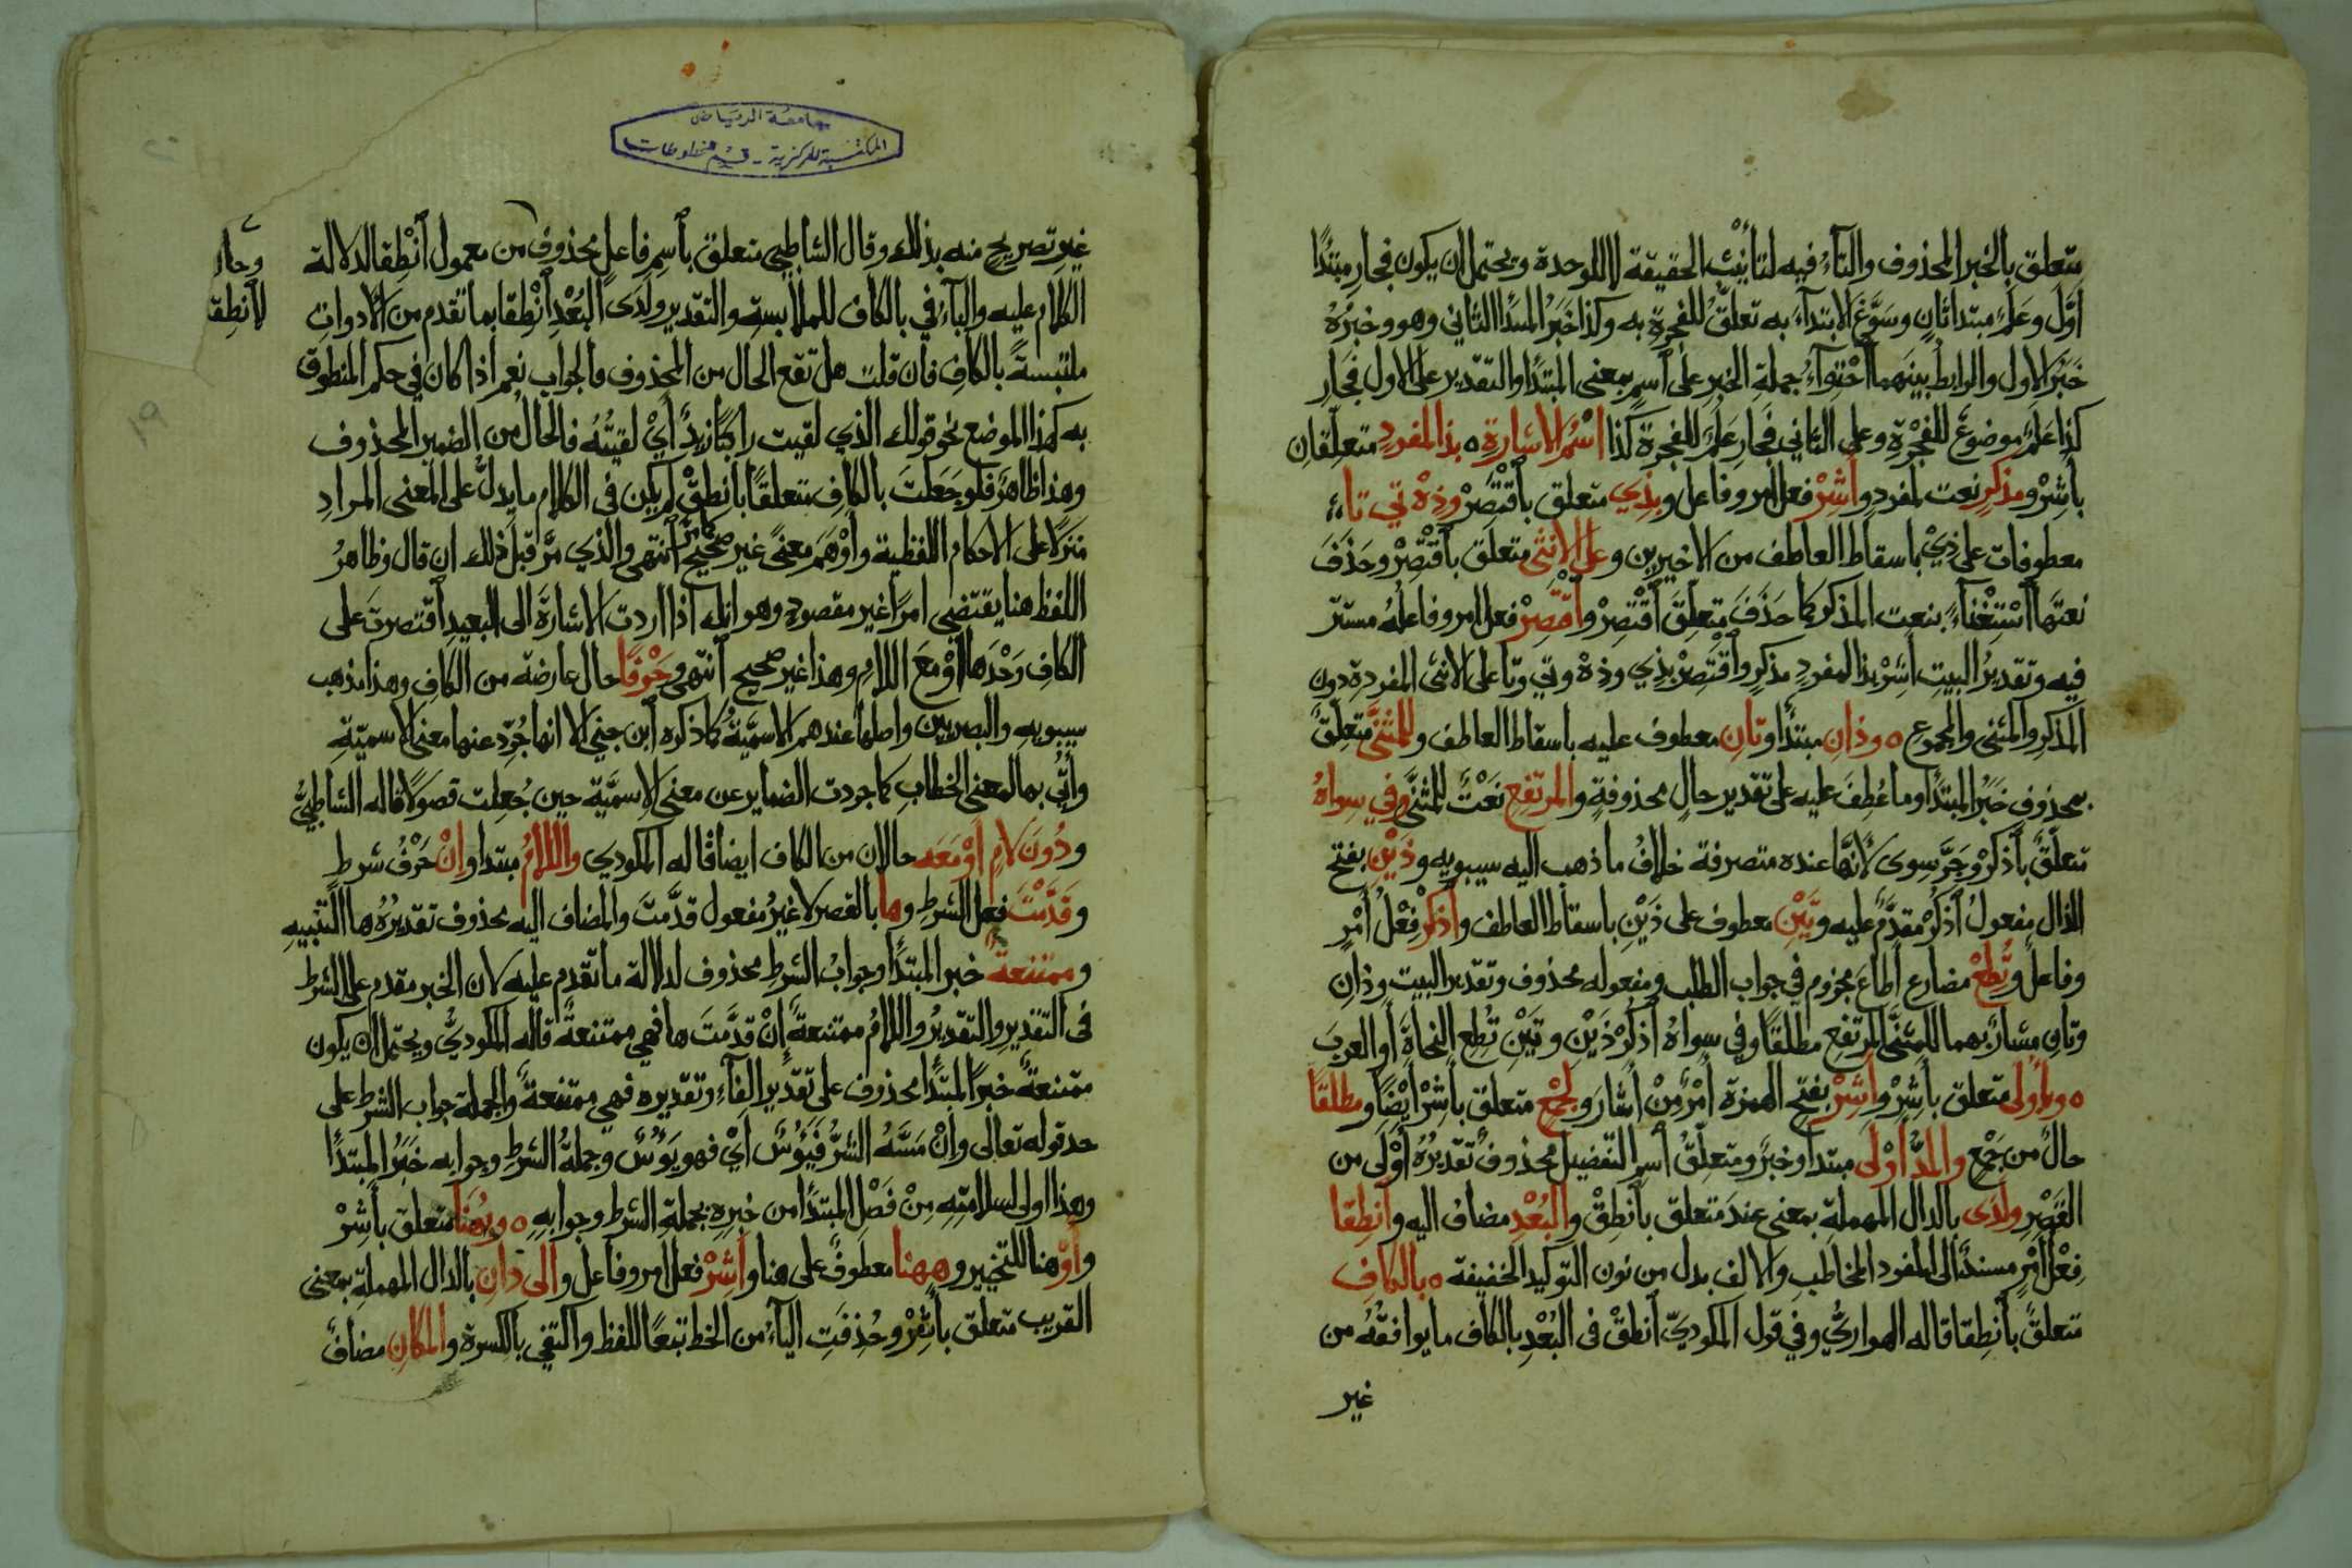 متعلق بالخبر المحذوف والتاءُ فيه لتأنيث الحقيقة لا للوحدة ويحتمل ان يكون فجار مبتدًا
اوَّل وعَلمٌ مبتدا ثانٍ وسَوَّغ الابتداءَ به تعلُّقُ للفجرة به وكذا خَبَرُ المبتدا الثاني وهو وخبرُهُ
خَبَرُ الاول والرابطُ بينهما احْتِوآءُ جملةِ الخبر على اسمٍ بمعنى المبتدًا والتقدير على الاول فجارِ
كذا عَلَمٌ موضوعٌ للفَجْرةِ وعلى الثاني فَجارِ عَلَمٌ للفجرة كذا اسْمُ الاشارةِ ه بذا لمفردٍ متعلقان
بأشِرْ ومذكرٍ نعت لمفردٍ وأشِرْ فعل امر وفاعل وبِذِي متعلق باقْتَصِرْ وذِهْ تي تا
معطوفات على ذِي باسقاط العاطف من الاخيرين وعلى الانثى متعلق باقْتَصِرْ وحَذَفَ
نعتَها اسْتِغْناءً بنعت المذكر كما حَذَفَ متعلَّقَ اقْتَصِرْ واقْتَصِرْ فعل امر وفاعلُهُ مستتر
فيه وتقديرُ البيتِ أَشِرْ بذا لمفردٍ مذكرٍ واقْتَصِرْ بذِي وذِهْ وتي وتا على الانثى المفردة دون
المذكرِ والمثنى والمجموع ه وذانِ مبتدًا وتانِ معطوف عليه باسقاط العاطف وللمثنَّى متعلقٌ
بمحذوفٍ خَبَرُ المبتدًا وما عُطِفَ عليه على تقدير حالٍ محذوفةٍ والمرتفِعِ نَعْتٌ للمثنَّى وفي سِواهُ
متعلقٌ باذكُرْ وجَرَّ سوى لانَّها عنده متصرفة خلافُ ما ذهب اليه سيبويه وذَيْنِ بفتح
الذال مفعولُ اذكُرْ مقدَّمٌ عليه وتَيْنِ معطوف على ذَيْنِ باسقاط العاطف واذكُرْ فِعْلُ أَمْرٍ
وفاعلٌ وتُطِعْ مضارع أطاعَ مجزوم في جواب الطلب ومفعوله محذوف وتقدير البيت وذانِ
وتانِ مشارٌ بهما للمثنَّى المرتفِعِ مطلقًا وفي سواهُ اذكُرْ ذَيْنِ وتَيْنِ تُطِعِ النحاةَ أو العربَ
ه وبأُولَى متعلق بأشِرْ وأشِرْ بفتح الهمزة أمْرٌ مِنْ أشارَ ولجمْعٍ متعلق بأشِرْ أيْضًا ومطلقًا
حالٌ من جَمْعٍ والمَدُّ أَوْلَى مبتدا وخبرٌ ومتعلّقُ اسمِ التفضيل محذوفٌ تقديرُهُ أوْلَى من
القَصْرِ ولدَى بالدال المهملةِ بمعنى عندَ متعلق بانطِقْ والبُعْدِ مضافٌ اليه وانطِقا
فِعْلُ أمْرٍ مسندٌ الى المفرد المخاطبِ والالف بدل من نون التوكيد الخفيفة ه بالكافِ
متعلقٌ بانطِقا قاله الهواريُّ وفي قول المكوديّ انطقْ فى البُعْدِ بالكاف ما يوافقُه من
غير
جامعة الرياض
المكتبة المركزية - قسم المخطوطات
غيرِ تصريحٍ منه بذلك وقال الشاطبي متعلق باسمِ فاعلٍ محذوفٍ من معمول انْطِقا لدلالة
الكلام عليه والباءُ في بالكاف للملابسةِ والتقدير ولَدَى البُعْدِ انْطِقا بما تقدم من الادواتِ
ملتبسةً بالكافِ فان قلت هل تقع الحال من المحذوف فالجواب نعم اذا كان في حكم المنطوق
به كهذا الموضع نحو قولك الذي لقيت راكبًا زيدٌ أيْ لقيتُهُ فالحالُ من الضمير المحذوف
وهذا ظاهرٌ فلو جَعَلتَ بالكافِ متعلقًا بانطِقْ لم يكن فى الكلام ما يدلُّ على المعنى المرادِ
منزلًا على الاحكام اللفظية وأوْهَمَ معنىً غير صحيحٍ انتهى والذي مرَّ قبل ذلك ان قال وظاهرُ
اللفظ هنا يقتضي امرًا غير مقصودٍ وهو انك اذا اردت الاشارةَ الى البعيدِ اقتصرتَ على
الكافِ وَحْدَها أوْ معَ اللامِ وهذا غير صحيح انتهى وحَرْفًا حال عارضة من الكافِ وهذا مذهب
سيبويه والبصريين واصلها عندهم الاسميَّةُ كما ذكره ابن جني الا انها جُرِّد عنها معنى الاسميّةِ
وأُتِيَ بها لمعنى الخطابِ كما جردت الضماير عن معنى الاسميَّة حين جُعِلت فصولًا قاله الشاطبيُّ
ودُونَ لامٍ أوْ مَعَه حالان من الكاف ايضا قاله المكودي واللامُ مبتدا وإنْ حَرْفُ شرطٍ
وقَدَّمْتَ فعل الشرطِ وها بالقصر لا غيرُ مفعول قدَّمتَ والمضاف اليه محذوف تقديرُهُ ها التنبيهِ
وممتنعةٌ خبر المبتدًا وجوابُ الشرطِ محذوف لدلالة ما تقدم عليه لان الخبر مقدم على الشرط
فى التقديرِ والتقديرُ واللامُ ممتنعةٌ إنْ قدَّمتَ ها فهي ممتنعةٌ قاله المكوديُّ ويحتمل ان يكون
ممتنعةٌ خبرًا لمبتدًا محذوف على تقدير الفاءِ وتقديره فهي ممتنعةٌ والجملة جواب الشرط على
حد قوله تعالى وإنْ مَسَّهُ الشرُّ فَيَؤُسٌ أيْ فهو يَؤُسٌ وجملةُ الشرطِ وجوابه خَبَرُ المبتدًا
وهذا اولى لسلامتِهِ مِنْ فَصْلِ المبتدًا من خبرِه بجملةِ الشرط وجوابِهِ ه وبهُنا متعلق بأشِرْ
وأوْ هنا للتخيير وههنا معطوفٌ على هنا وأشِرْ فعل امر وفاعل والى دانِ بالدال المهملةِ بمعنى
القريب متعلق بأشِرْ وحُذِفَتِ الياءُ من الخط تبعًا للفظ واكتفي بالكسرة والمكانِ مضافٌ
وحال
لانطِقا
١٩